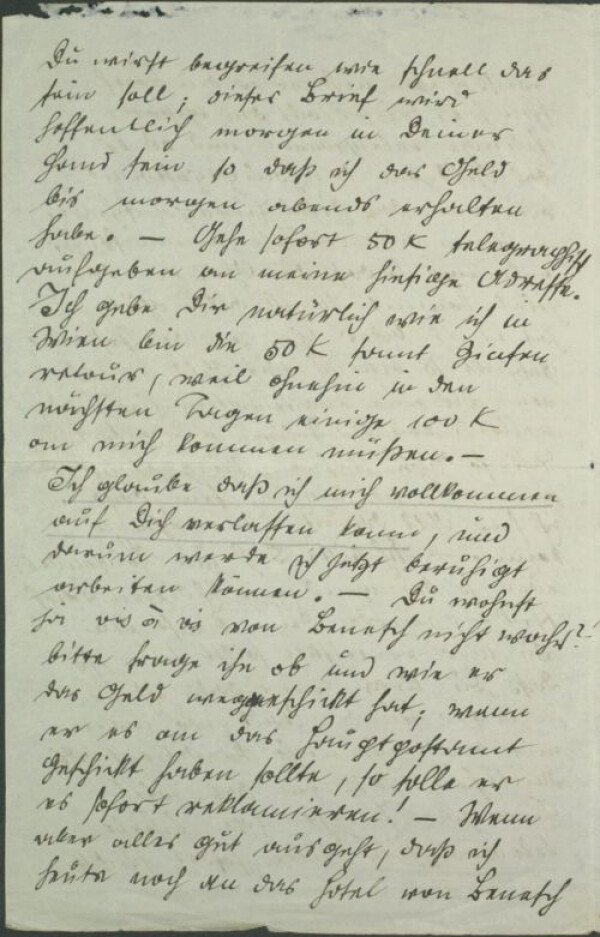 Du wirst begreifen wie schnell das
sein soll; dieser Brief wird
hoffentlich morgen in Deiner
Hand sein so daß ich das Geld
bis morgen abends erhalten
habe. — Gehe sofort 50 K telegraphisch
aufgeben an meine hiesige Adresse.
Ich gebe Dir natürlich wie ich in
Wien bin die 50 K samt Zinsen
retour, weil ohnehin in den
nächsten Tagen einige 100 K
an mich kommen müßen. —
Ich glaube daß ich mich vollkommen
auf Dich verlassen kann, und
darum werde ich jetzt beruhigt
arbeiten können. — Du wohnst
ja vis à vis von Benesch nicht wahr?!
bitte frage ihn ob und wie er
das Geld weggeschickt hat; wenn
er es an das Hauptpostamt
geschickt haben sollte, so solle er
es sofort reklamieren! — Wenn
aber alles gut ausgeht, daß ich
heute noch an das Hotel von Benesch